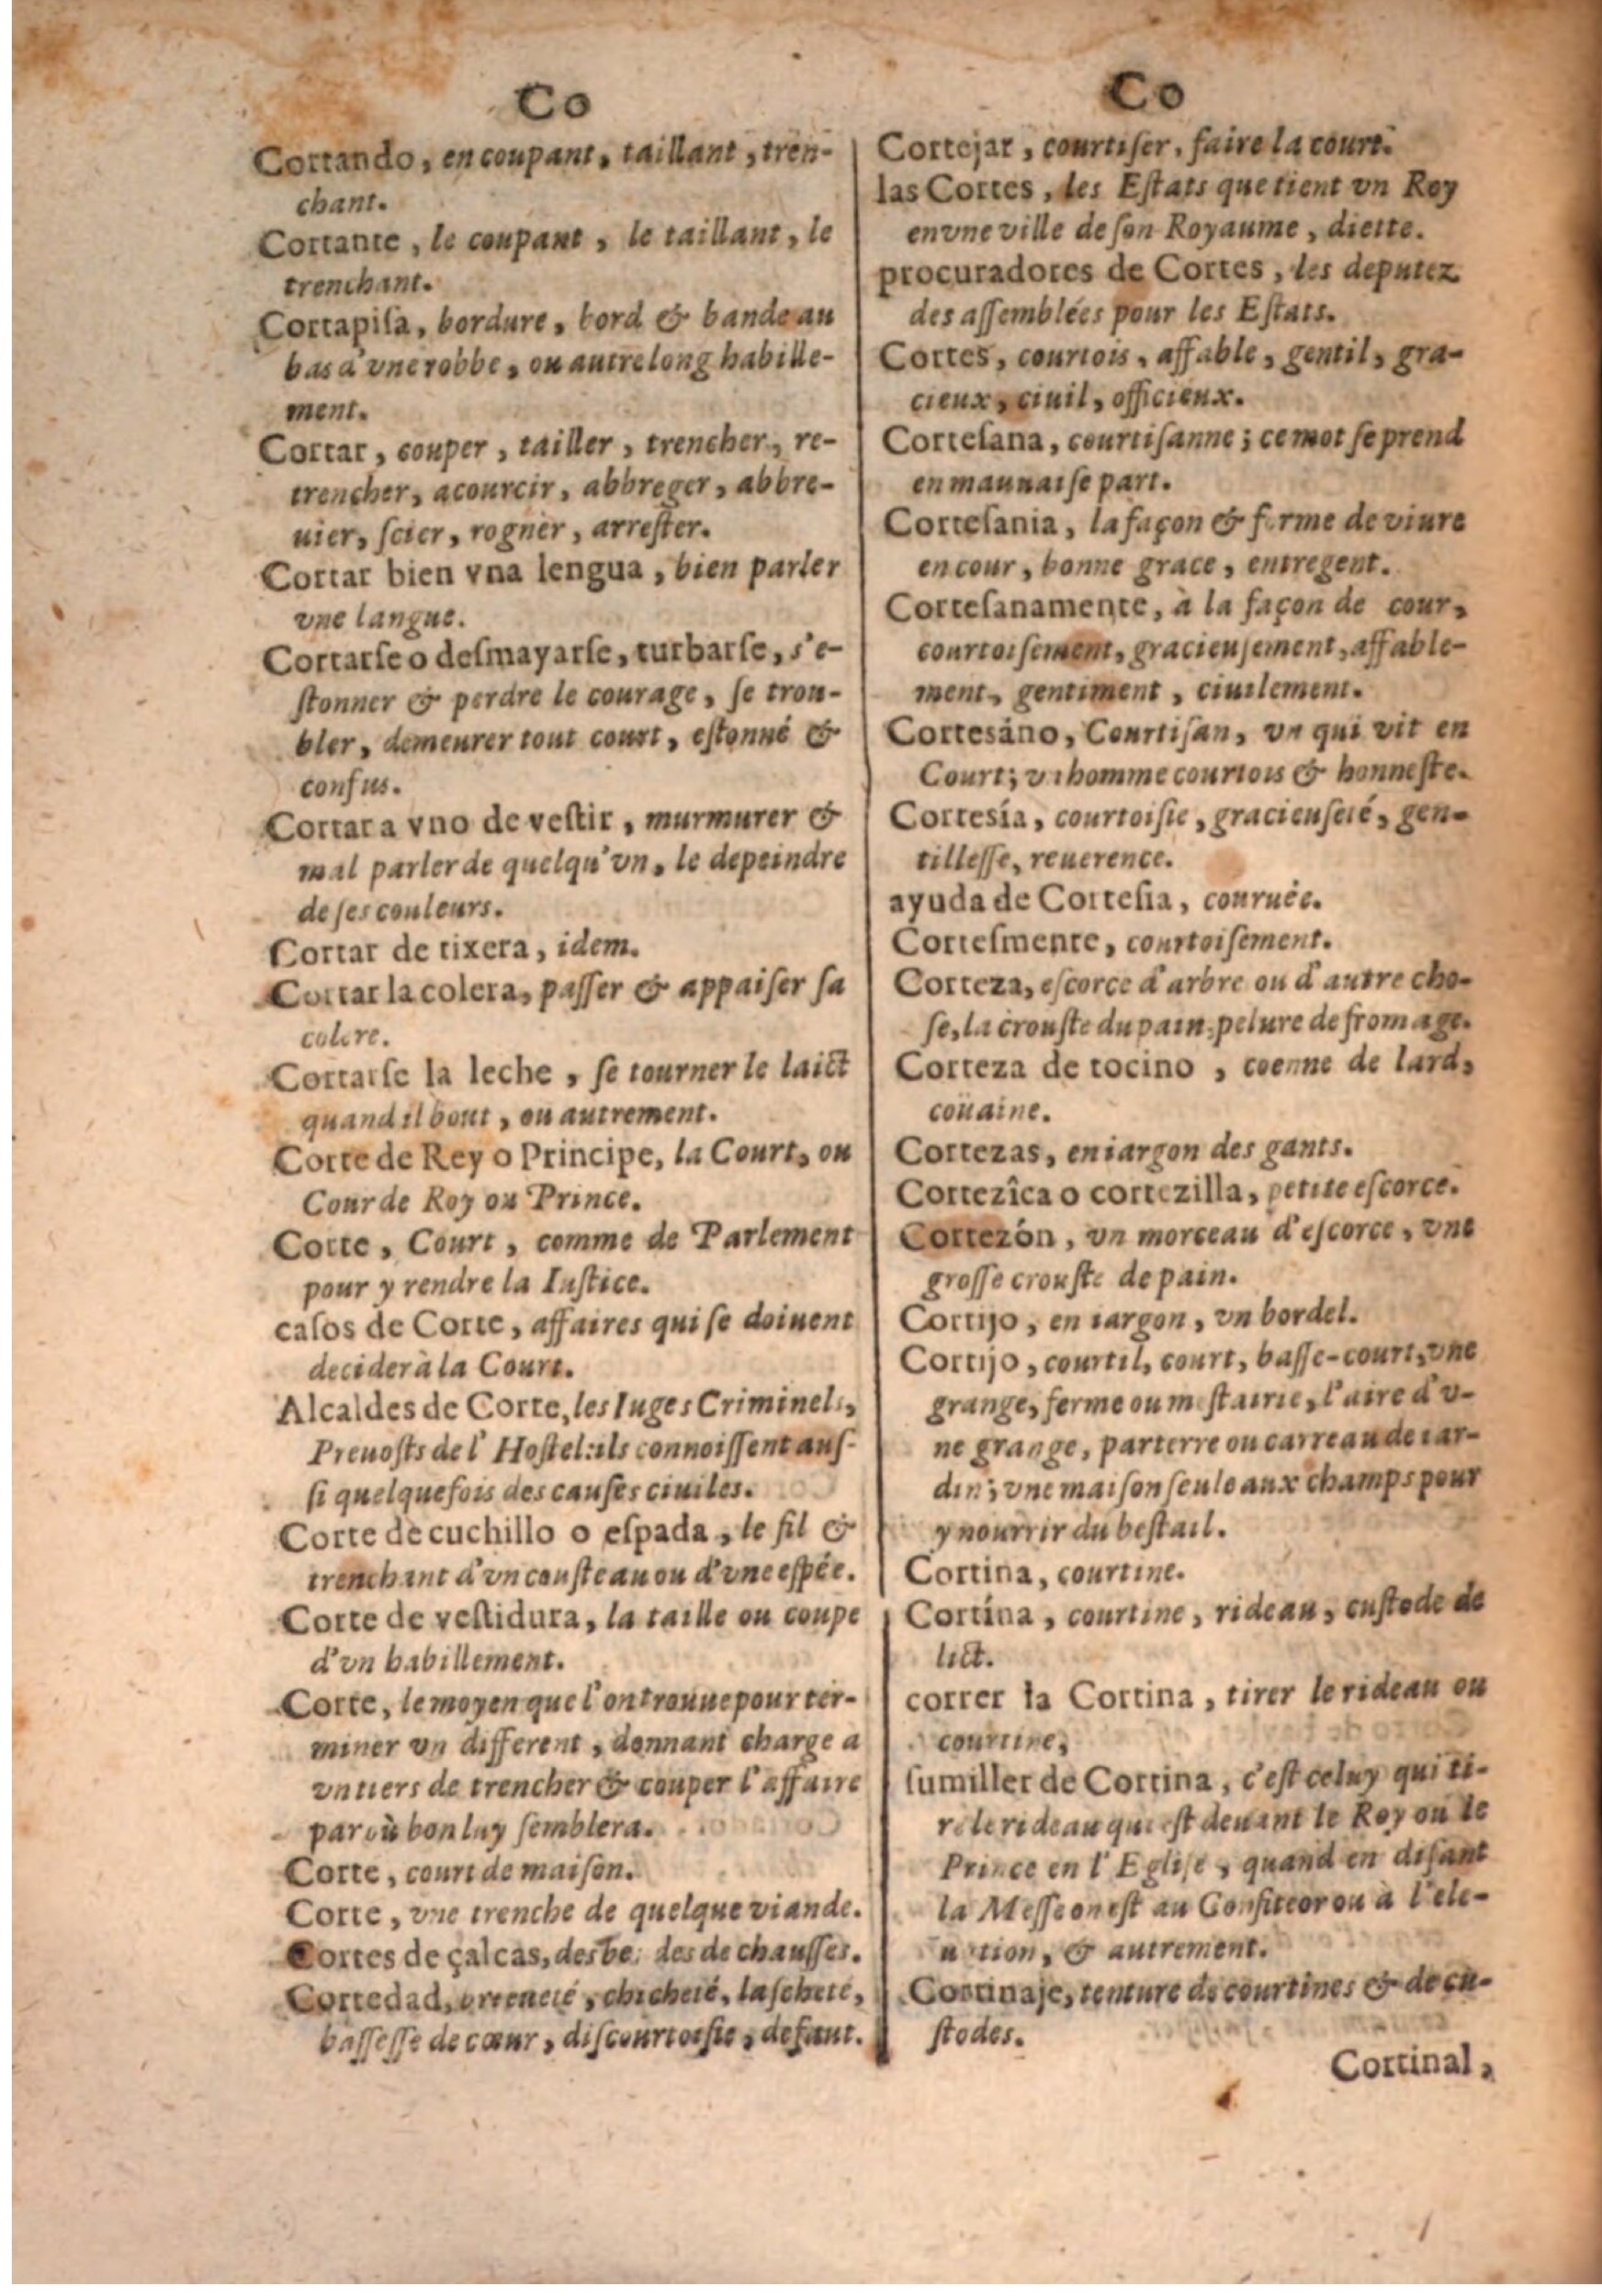 Co
Cortando, en coupant, taillant, tren-
chant.
Cortante, le coupant, le taillant, le
trenchant.
Cortapiſa, bordure, bord & bande au
bas d'vne robbe, ou autre long habille-
ment.
Cortar, couper, tailler, trencher, re-
trencher, acourcir, abbreger, abbre-
uier, ſcier, rogner, arreſter.
Cortar bien vna lengua, bien parler
vne langue.
Cortarſe o deſmayarſe, turbarſe, s'e-
ſtonner & perdre le courage, ſe trou-
bler, demeurer tout court, eſtonné &
confus.
Cortar a vno de veſtir, murmurer &
mal parler de quelqu'vn, le depeindre
de ſes couleurs.
Cortar de tixera, idem.
Cortar la colera, paſſer & appaiſer ſa
colere.
Cortarſe la leche, ſe tourner le laict
quand il bout, ou autrement.
Corte de Rey o Principe, la Court, ou
Cour de Roy ou Prince.
Corte, Court, comme de Parlement
pour y rendre la Iuſtice.
caſos de Corte, affaires qui ſe doiuent
decider à la Court.
Alcaldes de Corte, les Iuges Criminels,
Preuoſts de l'Hoſtel: ils connoiſſent auſ-
ſi quelquefois des cauſes ciuiles.
Corte de cuchillo o eſpada, le fil &
trenchant d'vn couſteau ou d'vne eſpée.
Corte de veſtidura, la taille ou coupe
d'vn habillement.
Corte, le moyen que l'on trouue pour ter-
miner vn different, donnant charge a
vn tiers de trencher & couper l'affaire
par où bon luy ſemblera.
Corte, court de maiſon.
Corte, vne trenche de quelque viande.
Cortes de çalcas, des des de chauſſes.
Cortedad, breueté, chicheté, laſcheté,
baſſeſſe de cœur, diſcourtoiſie, defaut.
Co
Cortejar, courtiſer, faire la court.
las Cortes, les Eſtats que tient vn Roy
en vne ville de ſon Royaume, diette.
procuradores de Cortes, les deputez
des aſſemblées pour les Eſtats.
Cortes, courtois, affable, gentil, gra-
cieux, ciuil, officieux.
Corteſana, courtiſanne; ce mot ſe prend
en mauuaiſe part.
Corteſania, la façon & forme de viure
en cour, bonne grace, entregent.
Corteſanamente, à la façon de cour,
courtoiſement, gracieuſement, affable-
ment, gentiment, ciuilement.
Cortesáno, Courtiſan, vn qui vit en
Court; vn homme courtois & honneſte.
Cortesía, courtoiſie, gracieuſeté, gen-
tilleſſe, reuerence.
ayuda de Corteſia, couruée.
Corteſmente, courtoiſement.
Corteza, eſcorce d'arbre ou d'autre cho-
ſe, la crouſte du pain, pelure de fromage.
Corteza de tocino, coenne de lard,
coüaine.
Cortezas, en iargon des gants.
Cortezîca o cortezilla, petite eſcorce.
Cortezón, vn morceau d'eſcorce, vne
groſſe crouſte de pain.
Cortijo, en iargon, vn bordel.
Cortijo, courtil, court, baſſe-court, vne
grange, ferme ou meſtairie, l'aire d'v-
ne grange, parterre ou carreau de iar-
din; vne maiſon ſeule aux champs pour
y nourrir du beſtail.
Cortina, courtine.
Cortína, courtine, rideau, cuſtode de
lict.
correr la Cortina, tirer le rideau ou
courtine,
ſumiller de Cortina, c'eſt celuy qui ti-
re le rideau qui eſt deuant le Roy ou le
Prince en l'Egliſe, quand en diſant
la Meſſe on eſt au Confiteor ou à l'ele-
uation, & autrement.
Cortinaje, tenture de courtines & de cu-
ſtodes.
Cortinal,